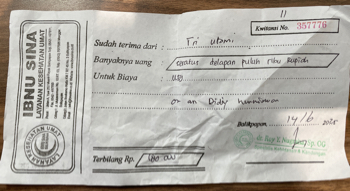 11
Kwitansi No. 357776
IBNU SINA
LAYANAN KESEHATAN UMAT
Sudah terima dari : Tri utami
Banyaknya uang : seratus delapan puluh ribu rupiah
Untuk Biaya : USG
an Didy
Balikpapan, 14/6 2025
Terbilang Rp. 180.000
LAYANAN KESEHATAN UMAT
Sp.OG